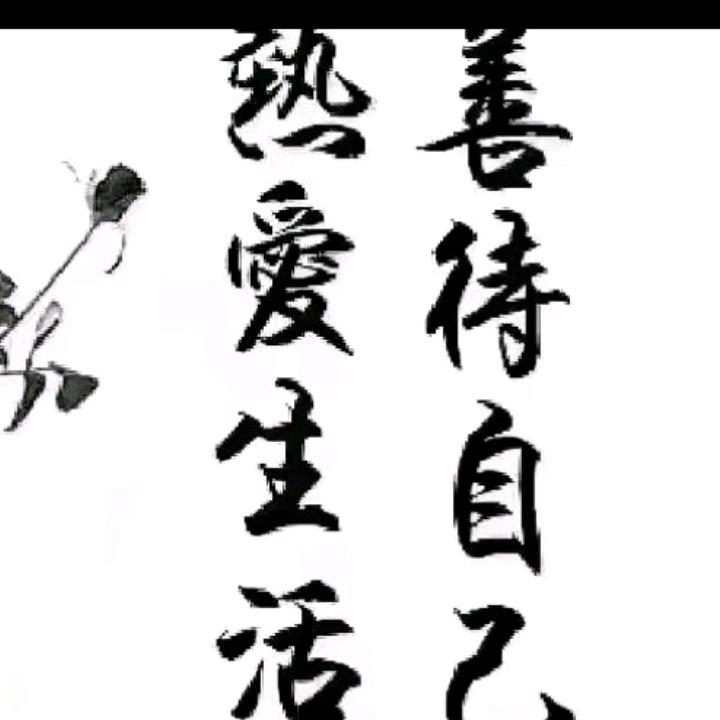 善待自己
熱愛生活